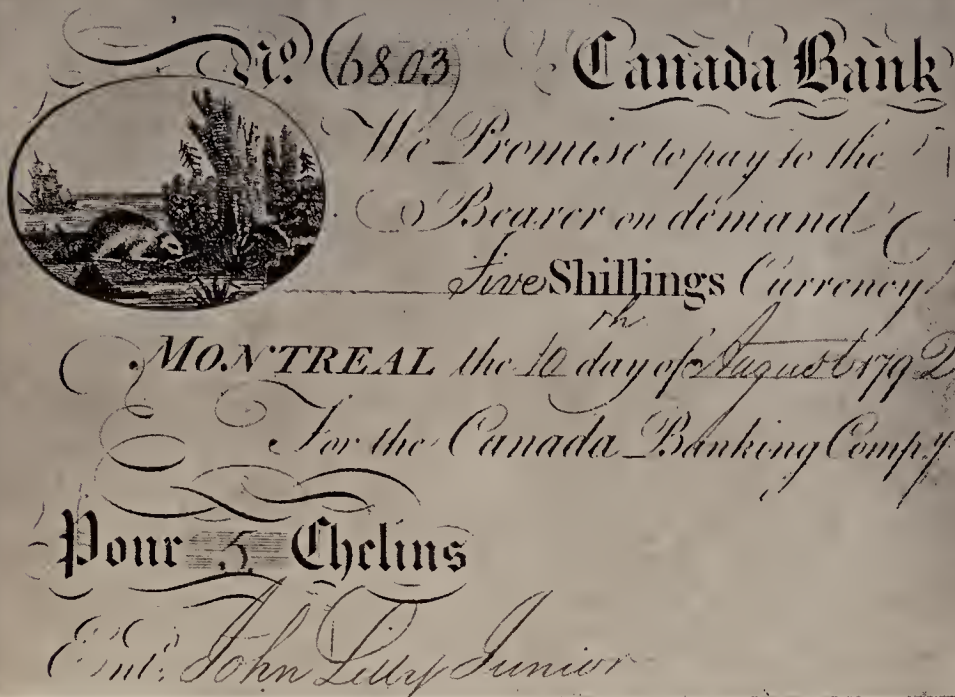 No. 6803 Canada Bank
We Promise to pay to the
Bearer on demand
Five Shillings Currency
MONTREAL the 10th day of August 1792
For the Canada Banking Compy.
Pour 5 Chelins
Ent. John Lilly Junior